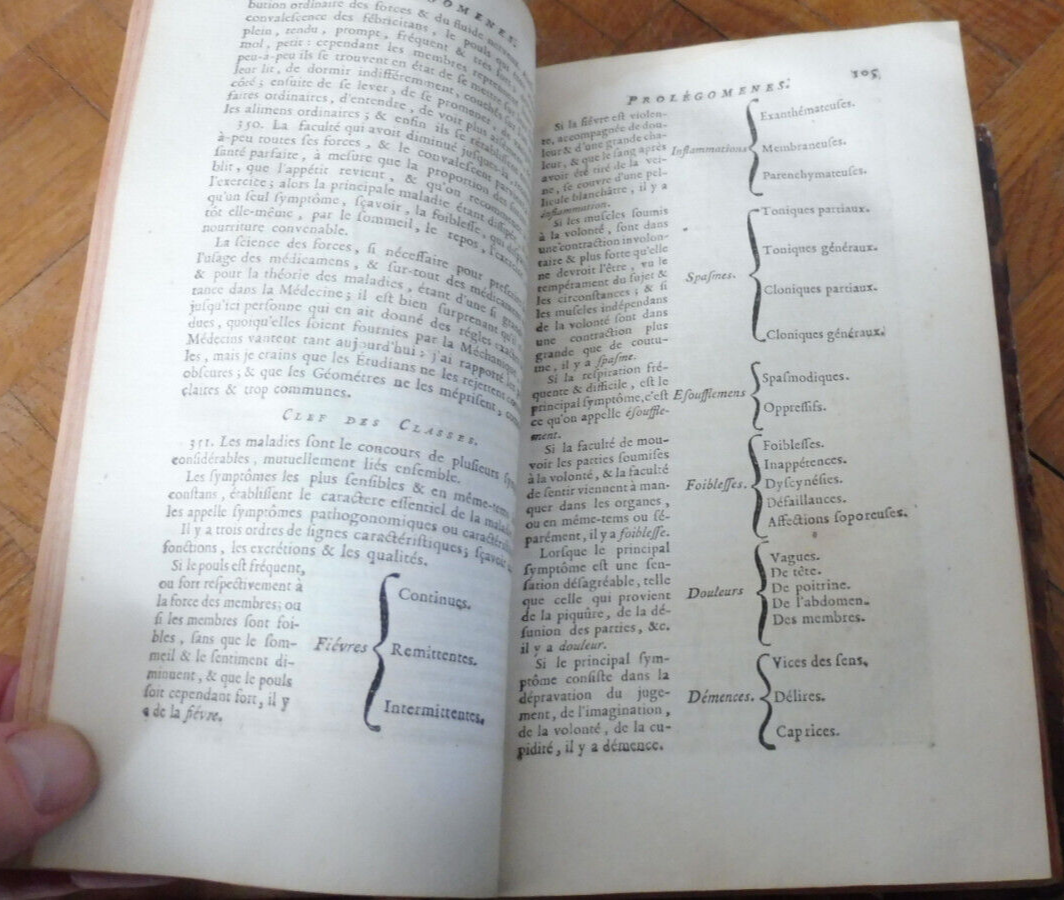 bution ordinaire des forces & du fluide nerveux
convaleſcence des fébricitans, le pouls qui
plein, tendu, prompt, fréquent & très-fort
mol, petit: cependant les membres reprennent
peu-à-peu ils ſe trouvent en état de ſe mettre ſur
leur lit, de dormir indifféremment, couchés ſur
côté; enſuite de ſe lever, de ſe promener,
faires ordinaires, d'entendre, de voir plus
les alimens ordinaires; & enfin ils ſe rétabliſſent
350. La faculté qui avoit diminué juſques-là
à-peu toutes ſes forces, & le convaleſcent parvient
ſanté parfaite, à meſure que la proportion des
blit, que l'appétit revient, & qu'on recommence
l'exercice; alors la principale maladie étant diſſipée
qu'un ſeul ſymptôme, ſçavoir, la foibleſſe, qui
tôt elle-même, par le ſommeil, le repos, l'exercice
nourriture convenable.
La ſcience des forces, ſi néceſſaire pour preſcrire
l'uſage des médicamens, & ſur-tout des médicamens
& pour la théorie des maladies, étant d'une ſi grande
tance dans la Médecine; il eſt bien ſurprenant qu'il
juſqu'ici perſonne qui en ait donné des régles exactes
dues, quoiqu'elles ſoient fournies par la Méchanique
Médecins vantent tant aujourd'hui: j'ai rapporté
les, mais je crains que les Étudians ne les rejettent
obſcures; & que les Géométres ne les mépriſent,
claires & trop communes.
CLEF DES CLASSES.
351. Les maladies ſont le concours de pluſieurs
conſidérables, mutuellement liés enſemble.
Les ſymptômes les plus ſenſibles & en même-tems
conſtans, établiſſent le caractere eſſentiel de la maladie
les appelle ſymptômes pathogonomiques ou
Il y a trois ordres de ſignes caractériſtiques; ſçavoir
fonctions, les excrétions & les qualités.
Si le pouls eſt fréquent,
ou fort reſpectivement à
la force des membres; ou
ſi les membres ſont foi-
bles, ſans que le ſom-
meil & le ſentiment di-
minuent, & que le pouls
ſoit cependant fort, il y
a de la fiévre.
Fiévres
Continues.
Remittentes.
Intermittentes.
PROLÉGOMENES. 105
Si la fiévre eſt violen-
te, accompagnée de dou-
leur & d'une grande cha-
leur, & que le ſang après
avoir été tiré de la vei-
ne, ſe couvre d'une pel-
licule blanchâtre, il y a
inflammation.
Inflammations
Exanthémateuſes.
Membraneuſes.
Parenchymateuſes.
Si les muſcles ſoumis
à la volonté, ſont dans
une contraction involon-
taire & plus forte qu'elle
ne devroit l'être, vu le
tempérament du ſujet &
les circonſtances; & ſi
les muſcles indépendans
de la volonté ſont dans
une contraction plus
grande que de coutu-
me, il y a ſpaſme.
Spaſmes.
Toniques partiaux.
Toniques généraux.
Cloniques partiaux.
Cloniques généraux.
Si la reſpiration fré-
quente & difficile, eſt le
principal ſymptôme, c'eſt
ce qu'on appelle éſouffle-
ment.
Eſoufflemens
Spaſmodiques.
Oppreſſifs.
Si la faculté de mou-
voir les parties ſoumiſes
à la volonté, & la faculté
de ſentir viennent à man-
quer dans les organes,
ou en même-tems ou ſé-
parément, il y a foibleſſe.
Foibleſſes.
Foibleſſes.
Inappétences.
Dyſcynéſies.
Défaillances.
Affections ſoporeuſes.
Lorſque le principal
ſymptôme eſt une ſen-
ſation déſagréable, telle
que celle qui provient
de la piquûre, de la dé-
ſunion des parties, &c.
il y a douleur.
Douleurs
Vagues.
De tête.
De poitrine.
De l'abdomen.
Des membres.
Si le principal ſym-
ptôme conſiſte dans la
dépravation du juge-
ment, de l'imagination,
de la volonté, de la cu-
pidité, il y a démence.
Démences.
Vices des ſens.
Délires.
Caprices.